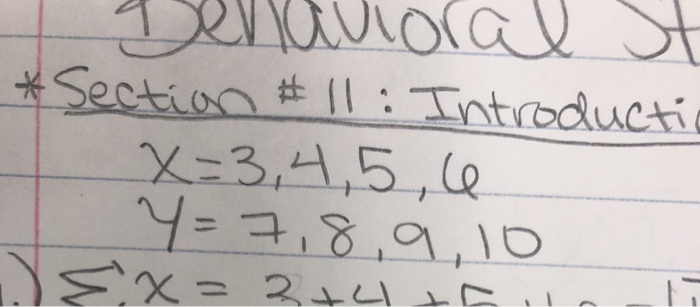 Behavioral St
* Section # 11 : Introductio
X = 3, 4, 5, 6
Y = 7, 8, 9, 10
.) Σ x = 3 + 4 + 5